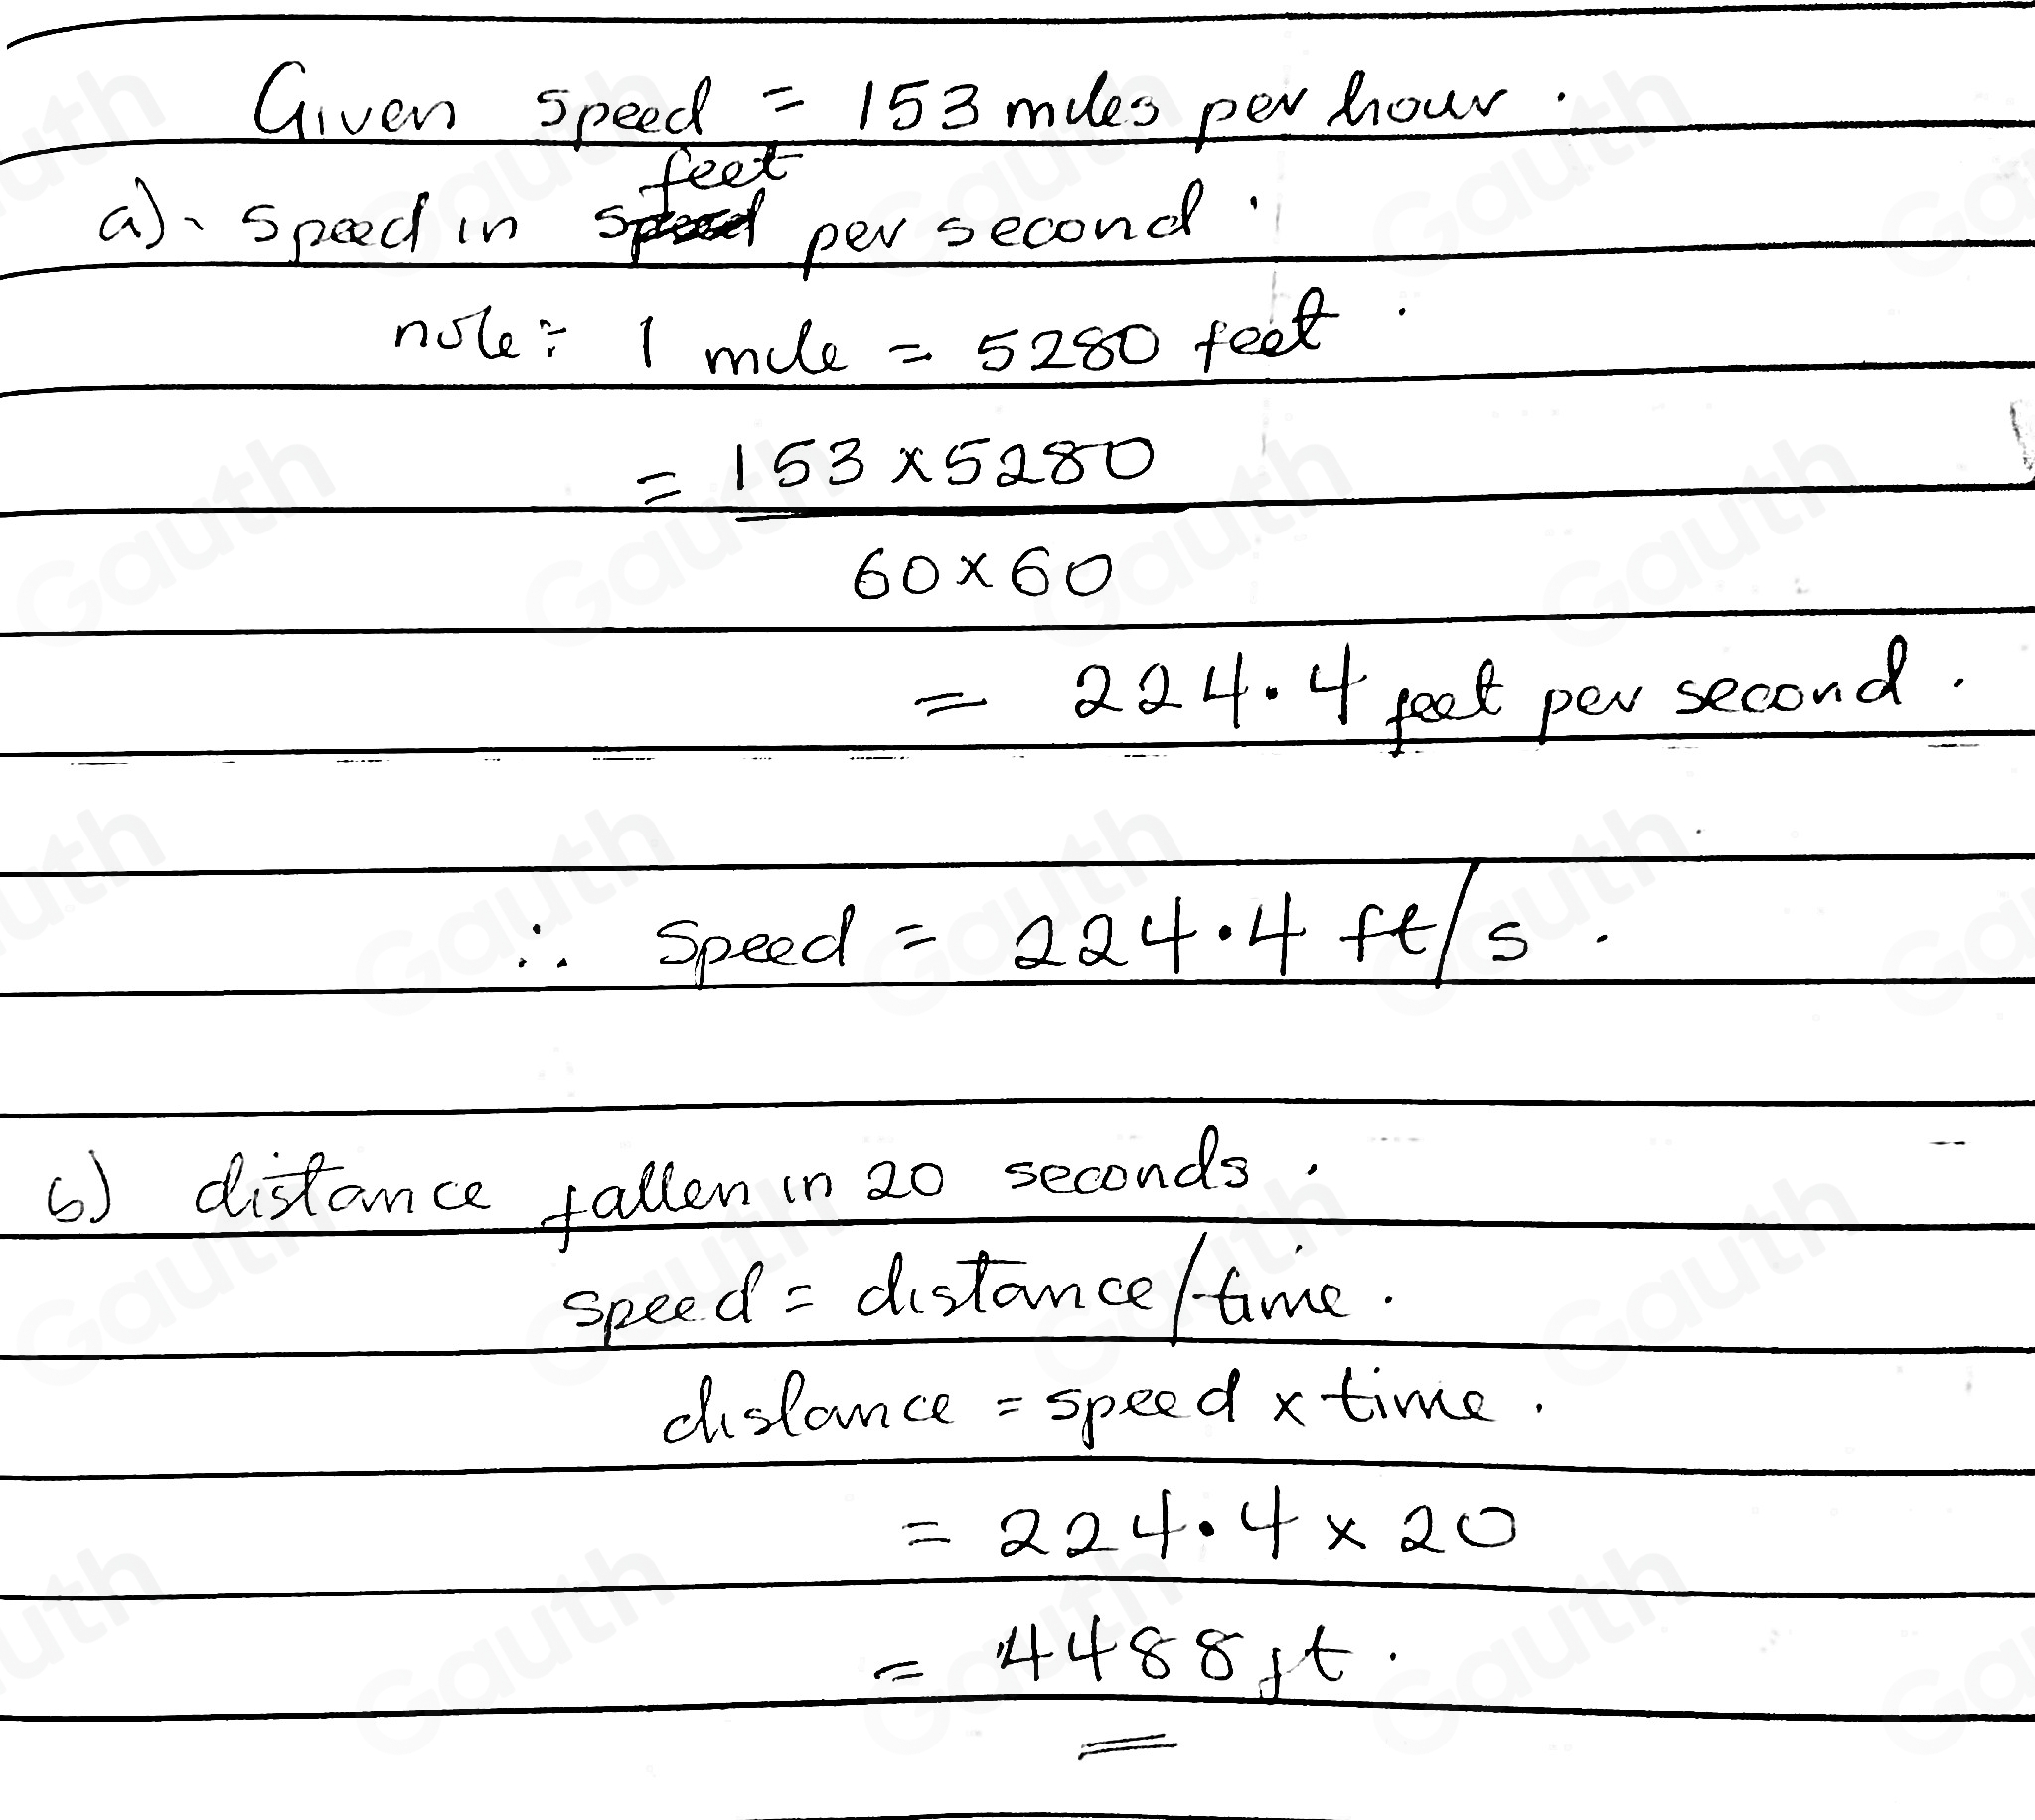 Given speed = 153 miles per hour.
feet
a). speed in speed per second.
note: 1 mile = 5280 feet.
= 153 x 5280
60 x 60
= 224.4 feet per second.
∴ speed = 224.4 ft/s.
b) distance fallen in 20 seconds.
speed = distance/time.
distance = speed x time.
= 224.4 x 20
= 4488 ft.
Gauth